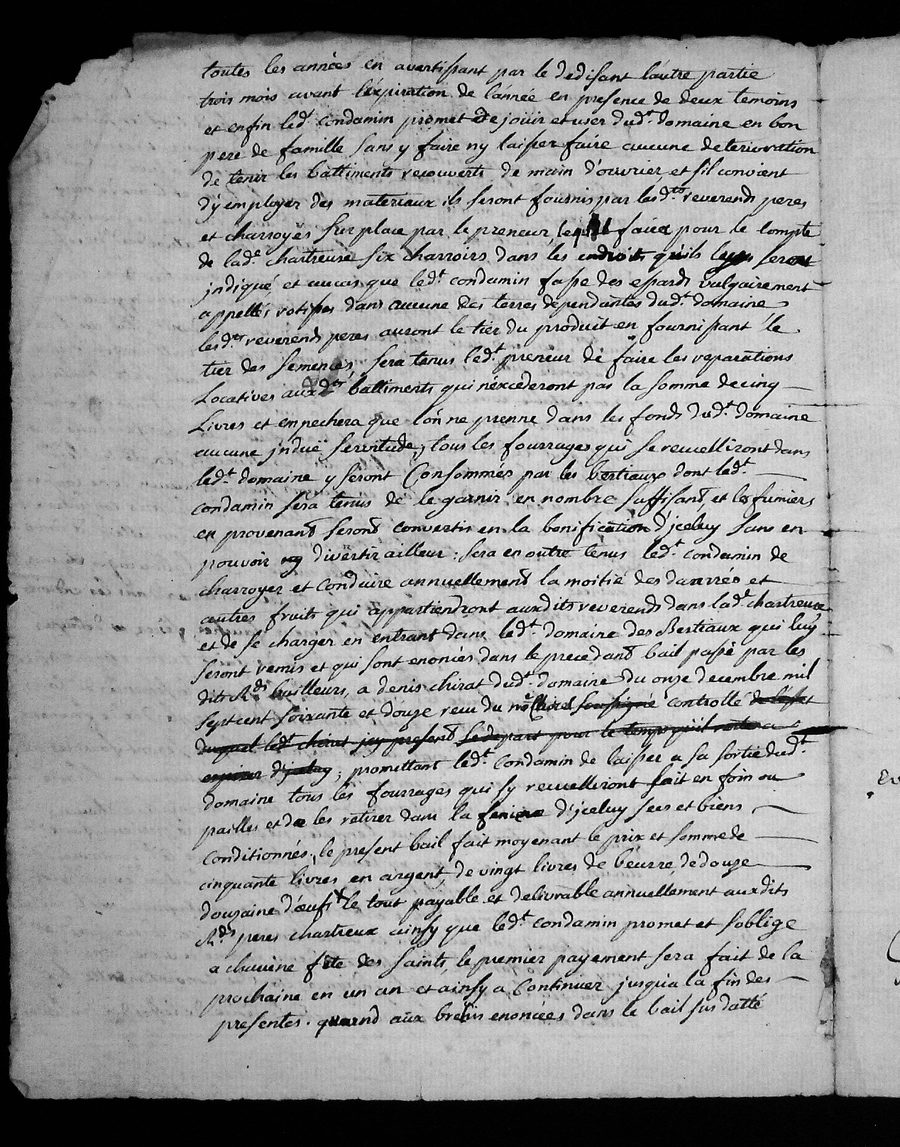 toutes les années en avertissant par le dedisant lautre partie
trois mois avant l'expiration de l'année en presence de deux temoins
et enfin led.t condamin promet de joüir et user dud.t domaine en bon
pere de famille sans y faire ny laisser faire aucune deterioration
de tenir les battiments recouverts de main d'ouvrier et s'il convient
d'y employer des materiaux ils seront fournis par lesd.ts reverends peres
et charroyés sur place par le preneur lequel faira pour le compte
de lad.e chartreuse six charrois dans les endroits qu'ils luy sera
jndiqué et au cas que led.t condamin fasse des essards vulgairement
appellés votisses dans aucune des terres dependantes dud.t domaine
lesd.ts reverends peres auront le tier du produit en fournissant le
tier des semences, sera tenus led.t preneur de faire les reparations
Locatives auxd.ts battiments qui n'excederont pas la somme de cinq
Livres et enpechera que lon ne prenne dans les fonds dud.t domaine
aucune jnduë servitude, tous les fourrages qui se recuelliront dans
led.t domaine y seront Consommés par les bestiaux dont led.t
condamin sera tenus de le garnir en nombre suffisant et les fumiers
en provenant seront convertis en la bonification d'jceluy sans en
pouvoir divertir ailleur : sera en outre tenus led.t condamin de
charroyer et conduire annuellement la moitié des danrées et
autres fruits qui appartiendront auxdits reverends dans lad.e chartreuse
et de se charger en entrant dans led.t domaine des Bestiaux qui luy
seront remis et qui sont enoncés dans le precedant bail passé par les
dits R.ds bailleurs, a denis chirat dud.t domaine du onze decembre mil
sept cent soixante et douze recu du no.re soussigné controllé de l'effet
duquel led.t chirat jcy present se depart pour le temps qu'il reste a
expirer d'jceluy ; promettant led.t condamin de laisser a sa sortie dud.t
domaine tous les fourrages qui s'y recuelliront soit en foin ou
pailles et de les retirer dans la feniere d'jceluy secs et biens
Conditionnés, le present bail fait moyenant le prix et somme de
cinquante livres en argent de vingt livres de beurre, de douze
douzaine d'œufs le tout payable et delivrable annuellement auxdits
R.ds peres chartreux ainsy que led.t condamin promet et s'oblige
a chacune fête des saints, le premier payement sera fait de la
prochaine en un an et ainsy a continuer jusqu'a la fin des
presentes. quand aux brebis enoncées dans le bail sus datté